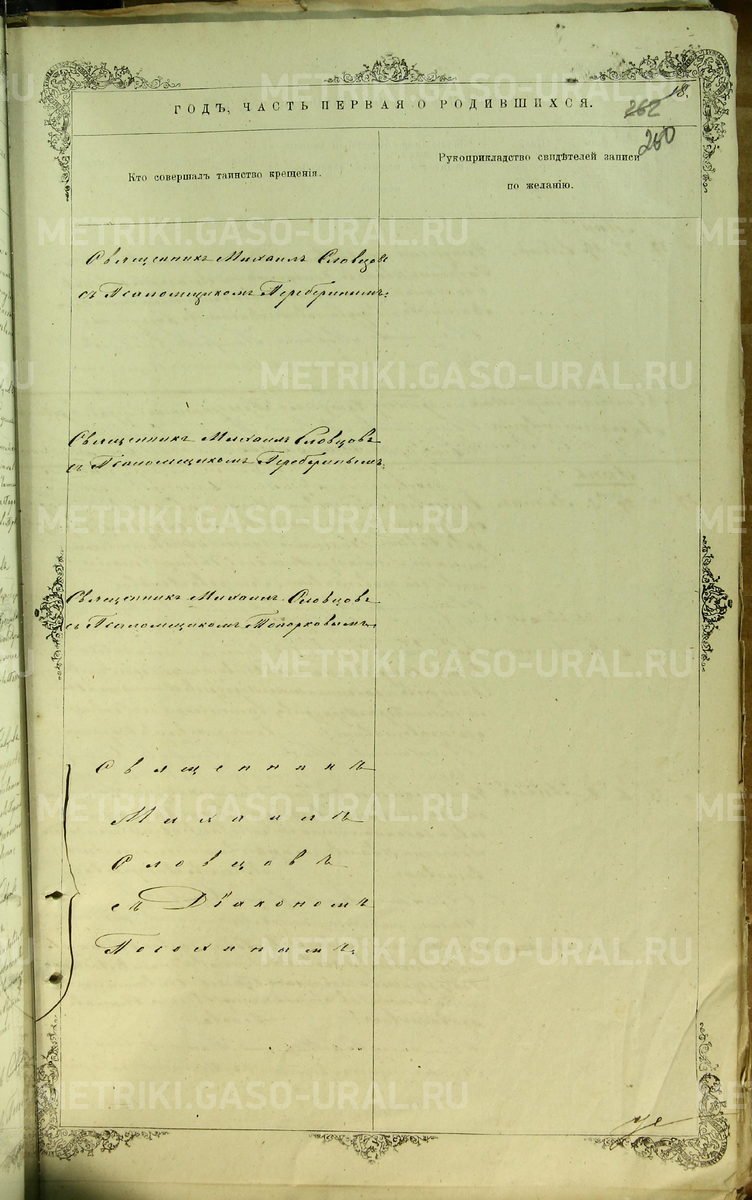 18.
ГОДЪ, ЧАСТЬ ПЕРВАЯ О РОДИВШИХСЯ.
262
260
Кто совершалъ таинство крещенія.
Рукоприкладство свидѣтелей записи
по желанію.
Священникъ Михаилъ Словцовъ
съ Псаломщикомъ
Священникъ Михаилъ Словцовъ
съ Псаломщикомъ
Священникъ Михаилъ Словцовъ
съ Псаломщикомъ Топорковымъ.
Священникъ
Михаилъ
Словцовъ
съ Діакономъ
Посохинымъ.
METRIKI.GASO-URAL.RU